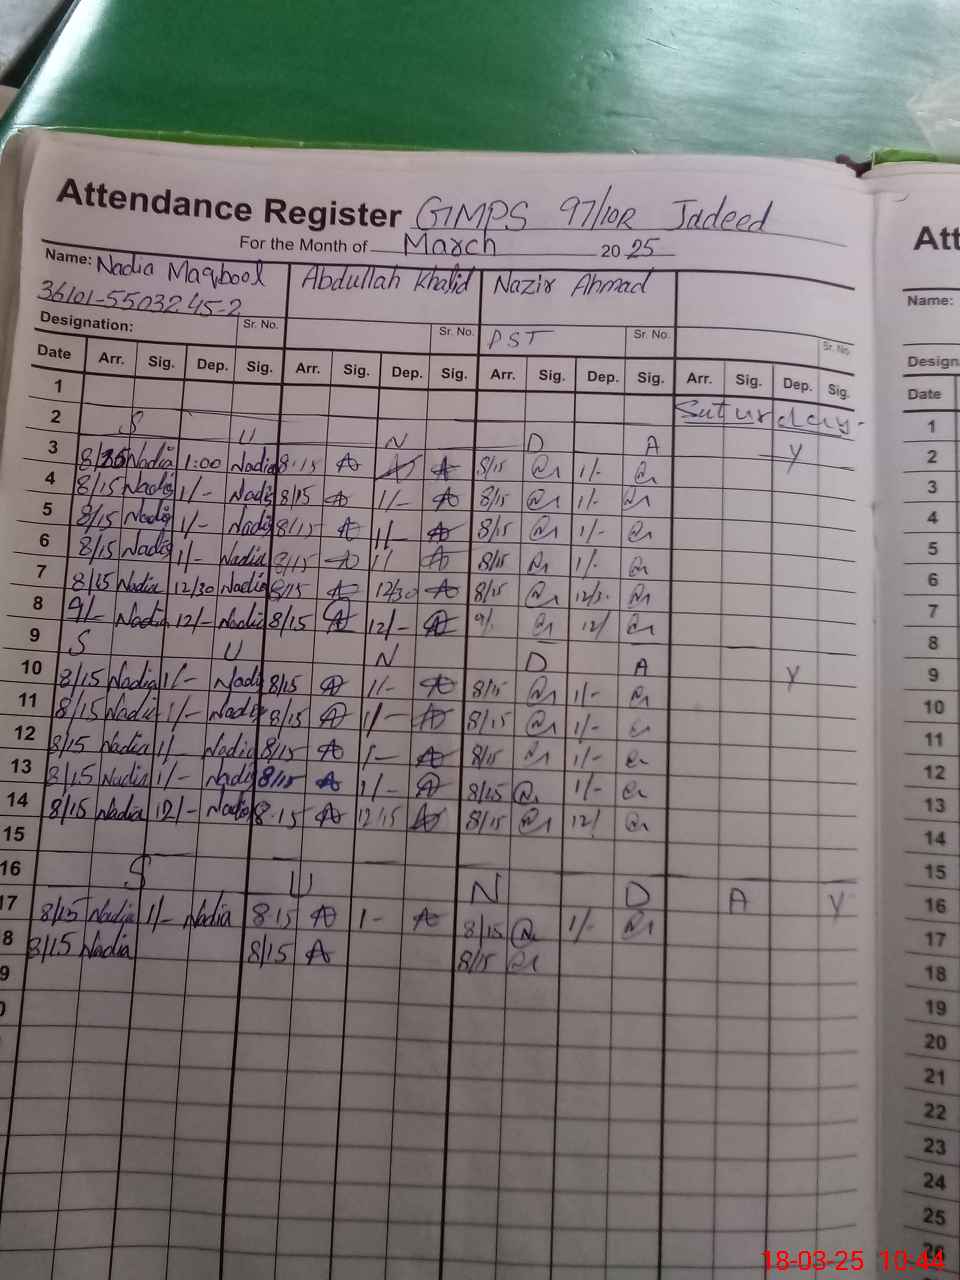 Attendance Register GMPS 97/10R Jadeed
For the Month of March 20 25
Name: Nadia Maqbool Abdullah Khalid Nazir Ahmad
36101-5503245-2
Designation: Sr. No. Sr. No. PST Sr. No. Sr. No.
Date Arr. Sig. Dep. Sig. Arr. Sig. Dep. Sig. Arr. Sig. Dep. Sig. Arr. Sig. Dep. Sig.
1 Saturday
2 S U N D A Y
3 Nadia 1:00 Nadia 8.15 8/15 1/-
4 8/15 Nadia 1/- Nadia 8/15 1/- 8/15 1/-
5 8/15 Nadia 1/- Nadia 8/15 1/- 8/15 1/-
6 8/15 Nadia 1/- Nadia 8/15 1/ 8/15 1/-
7 8/15 Nadia 12/30 Nadia 8/15 12/30 8/15 12/3.
8 9/- Nadia 12/- Nadia 8/15 12/- 9/. 12/
9 S U N D A Y
10 8/15 Nadia 1/- Nadia 8/15 1/- 8/15 1/-
11 8/15 Nadia 1/- Nadia 8/15 1/- 8/15 1/-
12 8/15 Nadia 1/- Nadia 8/15 1- 8/15 1/-
13 8/15 Nadia 1/- Nadia 8/15 1/- 8/15 1/-
14 8/15 Nadia 12/- Nadia 8.15 12/15 8/15 12/
15
16 S U N D A Y
7 8/15 Nadia 1/- Nadia 8.15 1- 8/15 1/-
8 8/15 Nadia 8/15 A 8/15
9
Att
Name:
Design
Date
1
2
3
4
5
6
7
8
9
10
11
12
13
14
15
16
17
18
19
20
21
22
23
24
25
26
18-03-25 10:44